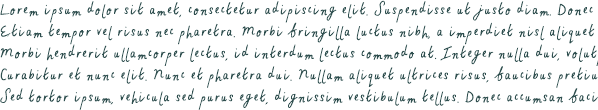 Lorem ipsum dolor sit amet, consectetur adipiscing elit. Suspendisse ut justo diam. Donec
Etiam tempor vel risus nec pharetra. Morbi fringilla luctus nibh, a imperdiet nisl aliquet
Morbi hendrerit ullamcorper lectus, id interdum lectus commodo at. Integer nulla dui, volut
Curabitur et nunc elit. Nunc et pharetra dui. Nullam aliquet ultrices risus, faucibus pretiu
Sed tortor ipsum, vehicula sed purus eget, dignissim vestibulum tellus. Donec accumsan faci